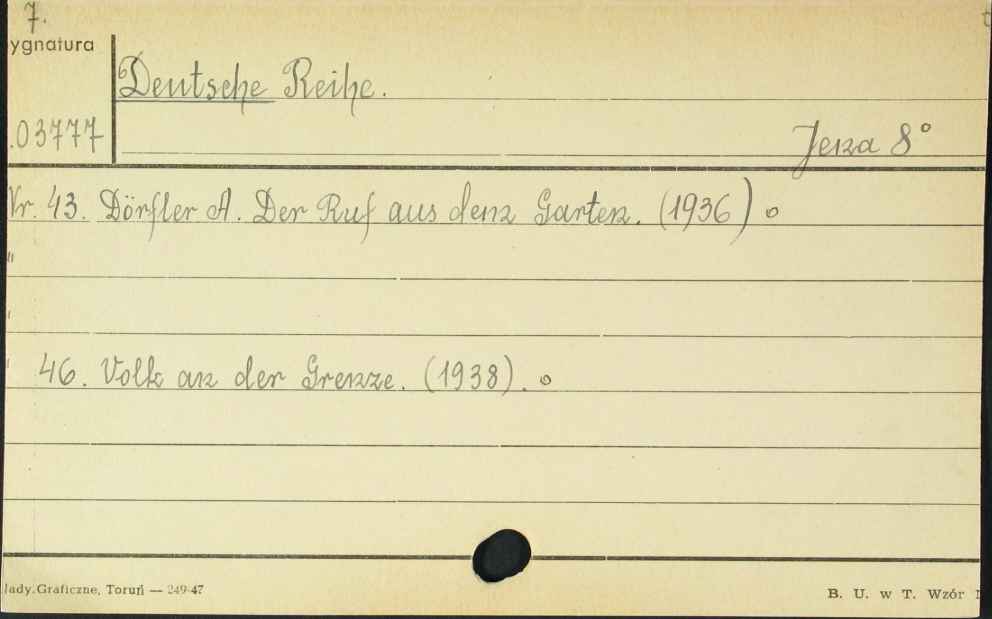 7.
ygnatura
Deutsche Reihe.
.03777
Jena 8°
Nr. 43. Dörfler A. Der Ruf aus dem Garten. (1936) o
"
46. Volk an der Grenze. (1938). o
lady.Graficzne, Toruń — 249-47
B. U. w T. Wzór